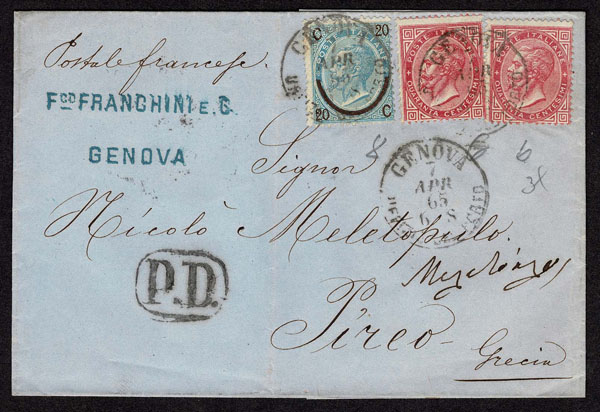 Postale francese
C 20
POSTE ITALIANE
20 C
GENOVA
APR
POSTE ITALIANE
QUARANTA CENTESIMI
GENOVA
APR
POSTE ITALIANE
QUARANTA CENTESIMI
Fco FRANGHINI E. C.
GENOVA
GENOVA
7
APR
65
6 S
Signor
Nicolò Meletopulo
P.D.
Pireo
Grecia